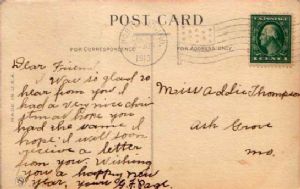 POST CARD
FOR CORRESPONDENCE
FOR ADDRESS ONLY
MADE IN U.S.A.
Dear Friend
I was so glad to
hear from you I
had a very nice
hope you
had the same I
hope I will soon
receive a letter
from you. Wishing
you a happy new
year, your G.F. Page.
Miss Addie Thompson
Ash Grove
Mo.
1913